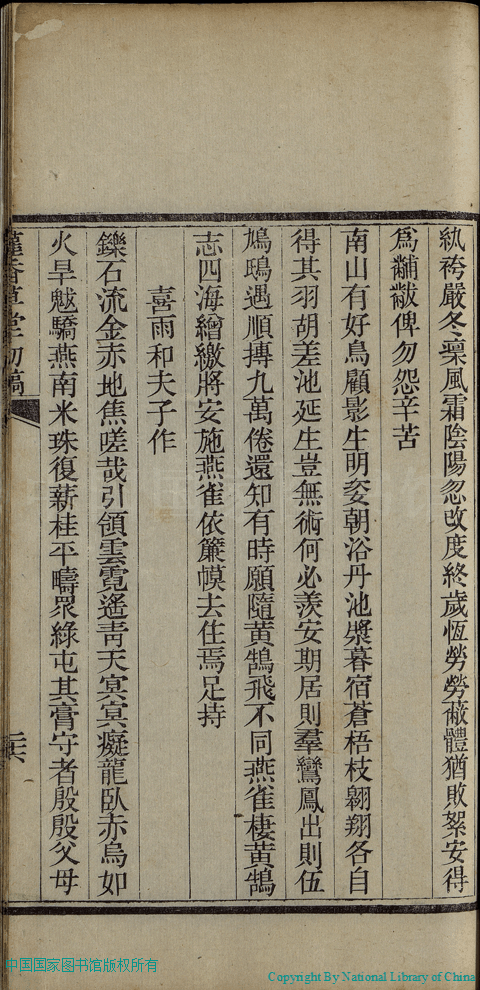 紈袴嚴冬稟風霜陰陽忽改度終歲恆勞勞蔽體猶敗絮安得
爲黼黻俾勿怨辛苦
南山有好鳥顧影生明姿朝浴丹池漿暮宿蒼梧枝翱翔各自
得其羽胡差池延生豈無術何必羨安期居則羣鸞鳳出則伍
鳩鴟遇順摶九萬倦還知有時願隨黃鵠飛不同燕雀棲黃鵠
志四海繒繳將安施燕雀依簾幙去住焉足持
喜雨和夫子作
鑠石流金赤地焦嗟哉引領雲霓遙靑天冥冥癡龍臥赤烏如
火旱魃驕燕南米珠復薪桂平疇眾綠屯其膏守者殷殷父母
香草堂初稿
中国国家图书馆版权所有
Copyright By National Library of China